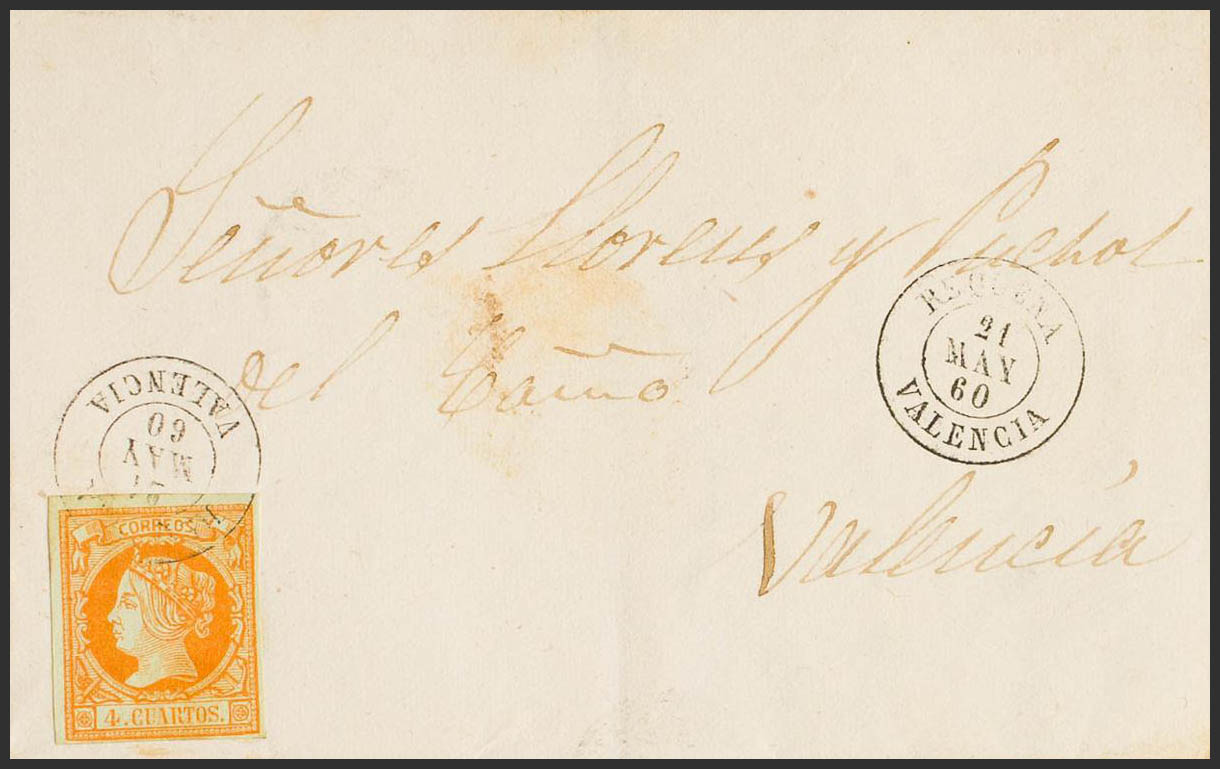 Señores Llorens y Puchol
del Caño
Valencia
REQUENA
21
MAY
60
VALENCIA
VALENCIA
60
MAY
CORREOS
4. CUARTOS.